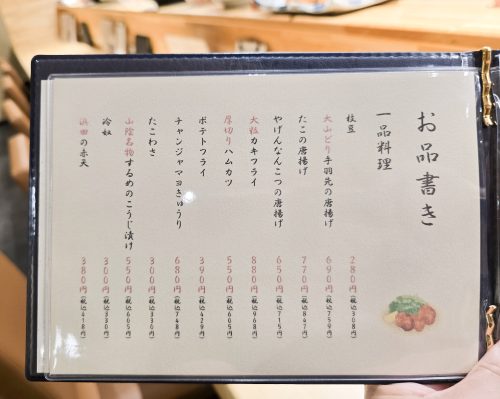 お品書き
一品料理
枝豆 280円(税込308円)
大山どり手羽先の唐揚げ 690円(税込759円)
たこの唐揚げ 770円(税込847円)
やげんなんこつの唐揚げ 650円(税込715円)
大粒カキフライ 880円(税込968円)
厚切りハムカツ 550円(税込605円)
ポテトフライ 390円(税込429円)
チャンジャマヨきゅうり 680円(税込748円)
たこわさ 300円(税込330円)
山陰名物するめのこうじ漬け 550円(税込605円)
冷奴 300円(税込330円)
浜田の赤天 380円(税込418円)